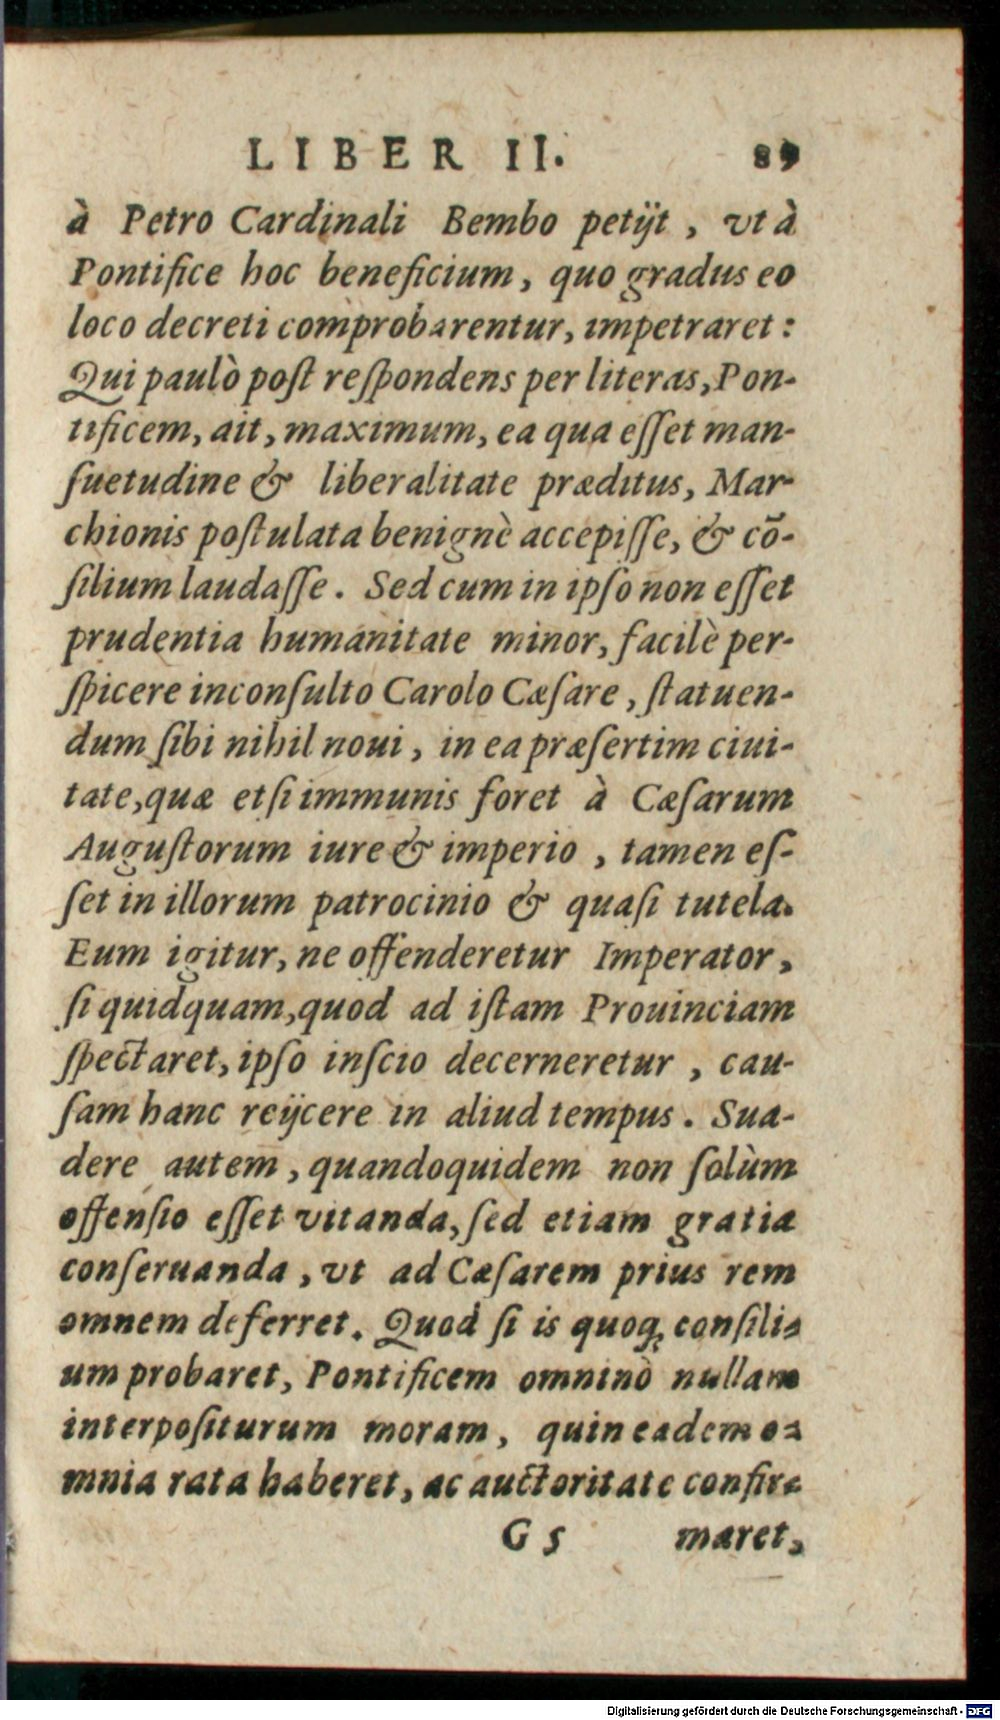 LIBER II. 89
à Petro Cardinali Bembo petijt, vt à
Pontifice hoc beneficium, quo gradus eo
loco decreti comprobarentur, impetraret:
Qui paulò poſt reſpondens per literas, Pon-
tificem, ait, maximum, ea qua eſſet man-
ſuetudine & liberalitate præditus, Mar-
chionis poſtulata benignè accepiſſe, & cō-
ſilium laudaſſe. Sed cum in ipſo non eſſet
prudentia humanitate minor, facilè per-
ſpicere inconſulto Carolo Cæſare, ſtatuen-
dum ſibi nihil noui, in ea præſertim ciui-
tate, quæ etſi immunis foret à Cæſarum
Auguſtorum iure & imperio, tamen eſ-
ſet in illorum patrocinio & quaſi tutela.
Eum igitur, ne offenderetur Imperator,
ſi quidquam, quod ad iſtam Prouinciam
ſpectaret, ipſo inſcio decerneretur, cau-
ſam hanc reijcere in aliud tempus. Sua-
dere autem, quandoquidem non ſolùm
offenſio eſſet vitanda, ſed etiam gratia
conſeruanda, vt ad Cæſarem prius rem
omnem deferret. Quod ſi is quoq; conſili-
um probaret, Pontificem omninò nullam
interpoſiturum moram, quin eadem o-
mnia rata haberet, ac auctoritate confir-
G 5 maret,
Digitalisierung gefördert durch die Deutsche Forschungsgemeinschaft - DFG